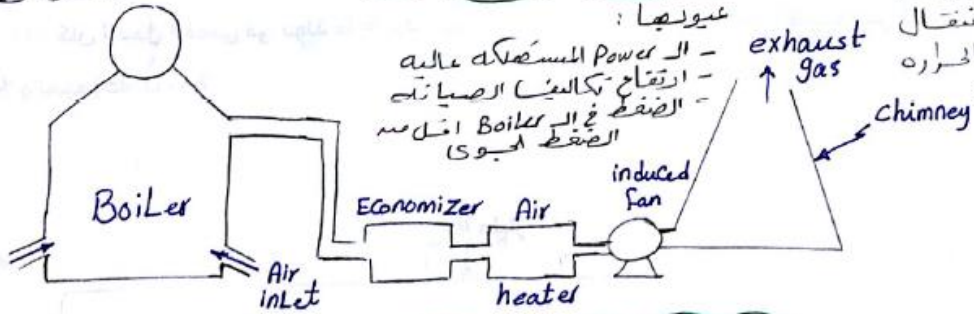 عيوبها :
- الـ Power المستهلكه عاليه
- ارتفاع تكاليف الصيانه
- الضغط في الـ Boiler اقل من
الضغط الجوى
نتقال
الحراره
exhaust
gas
chimney
induced
fan
Boiler
Economizer
Air
heater
Air
inlet